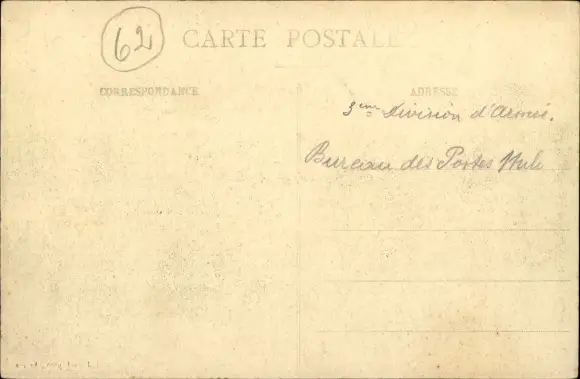 62
CARTE POSTALE
CORRESPONDANCE
ADRESSE
3eme Division d'Armée.
Bureau des Postes